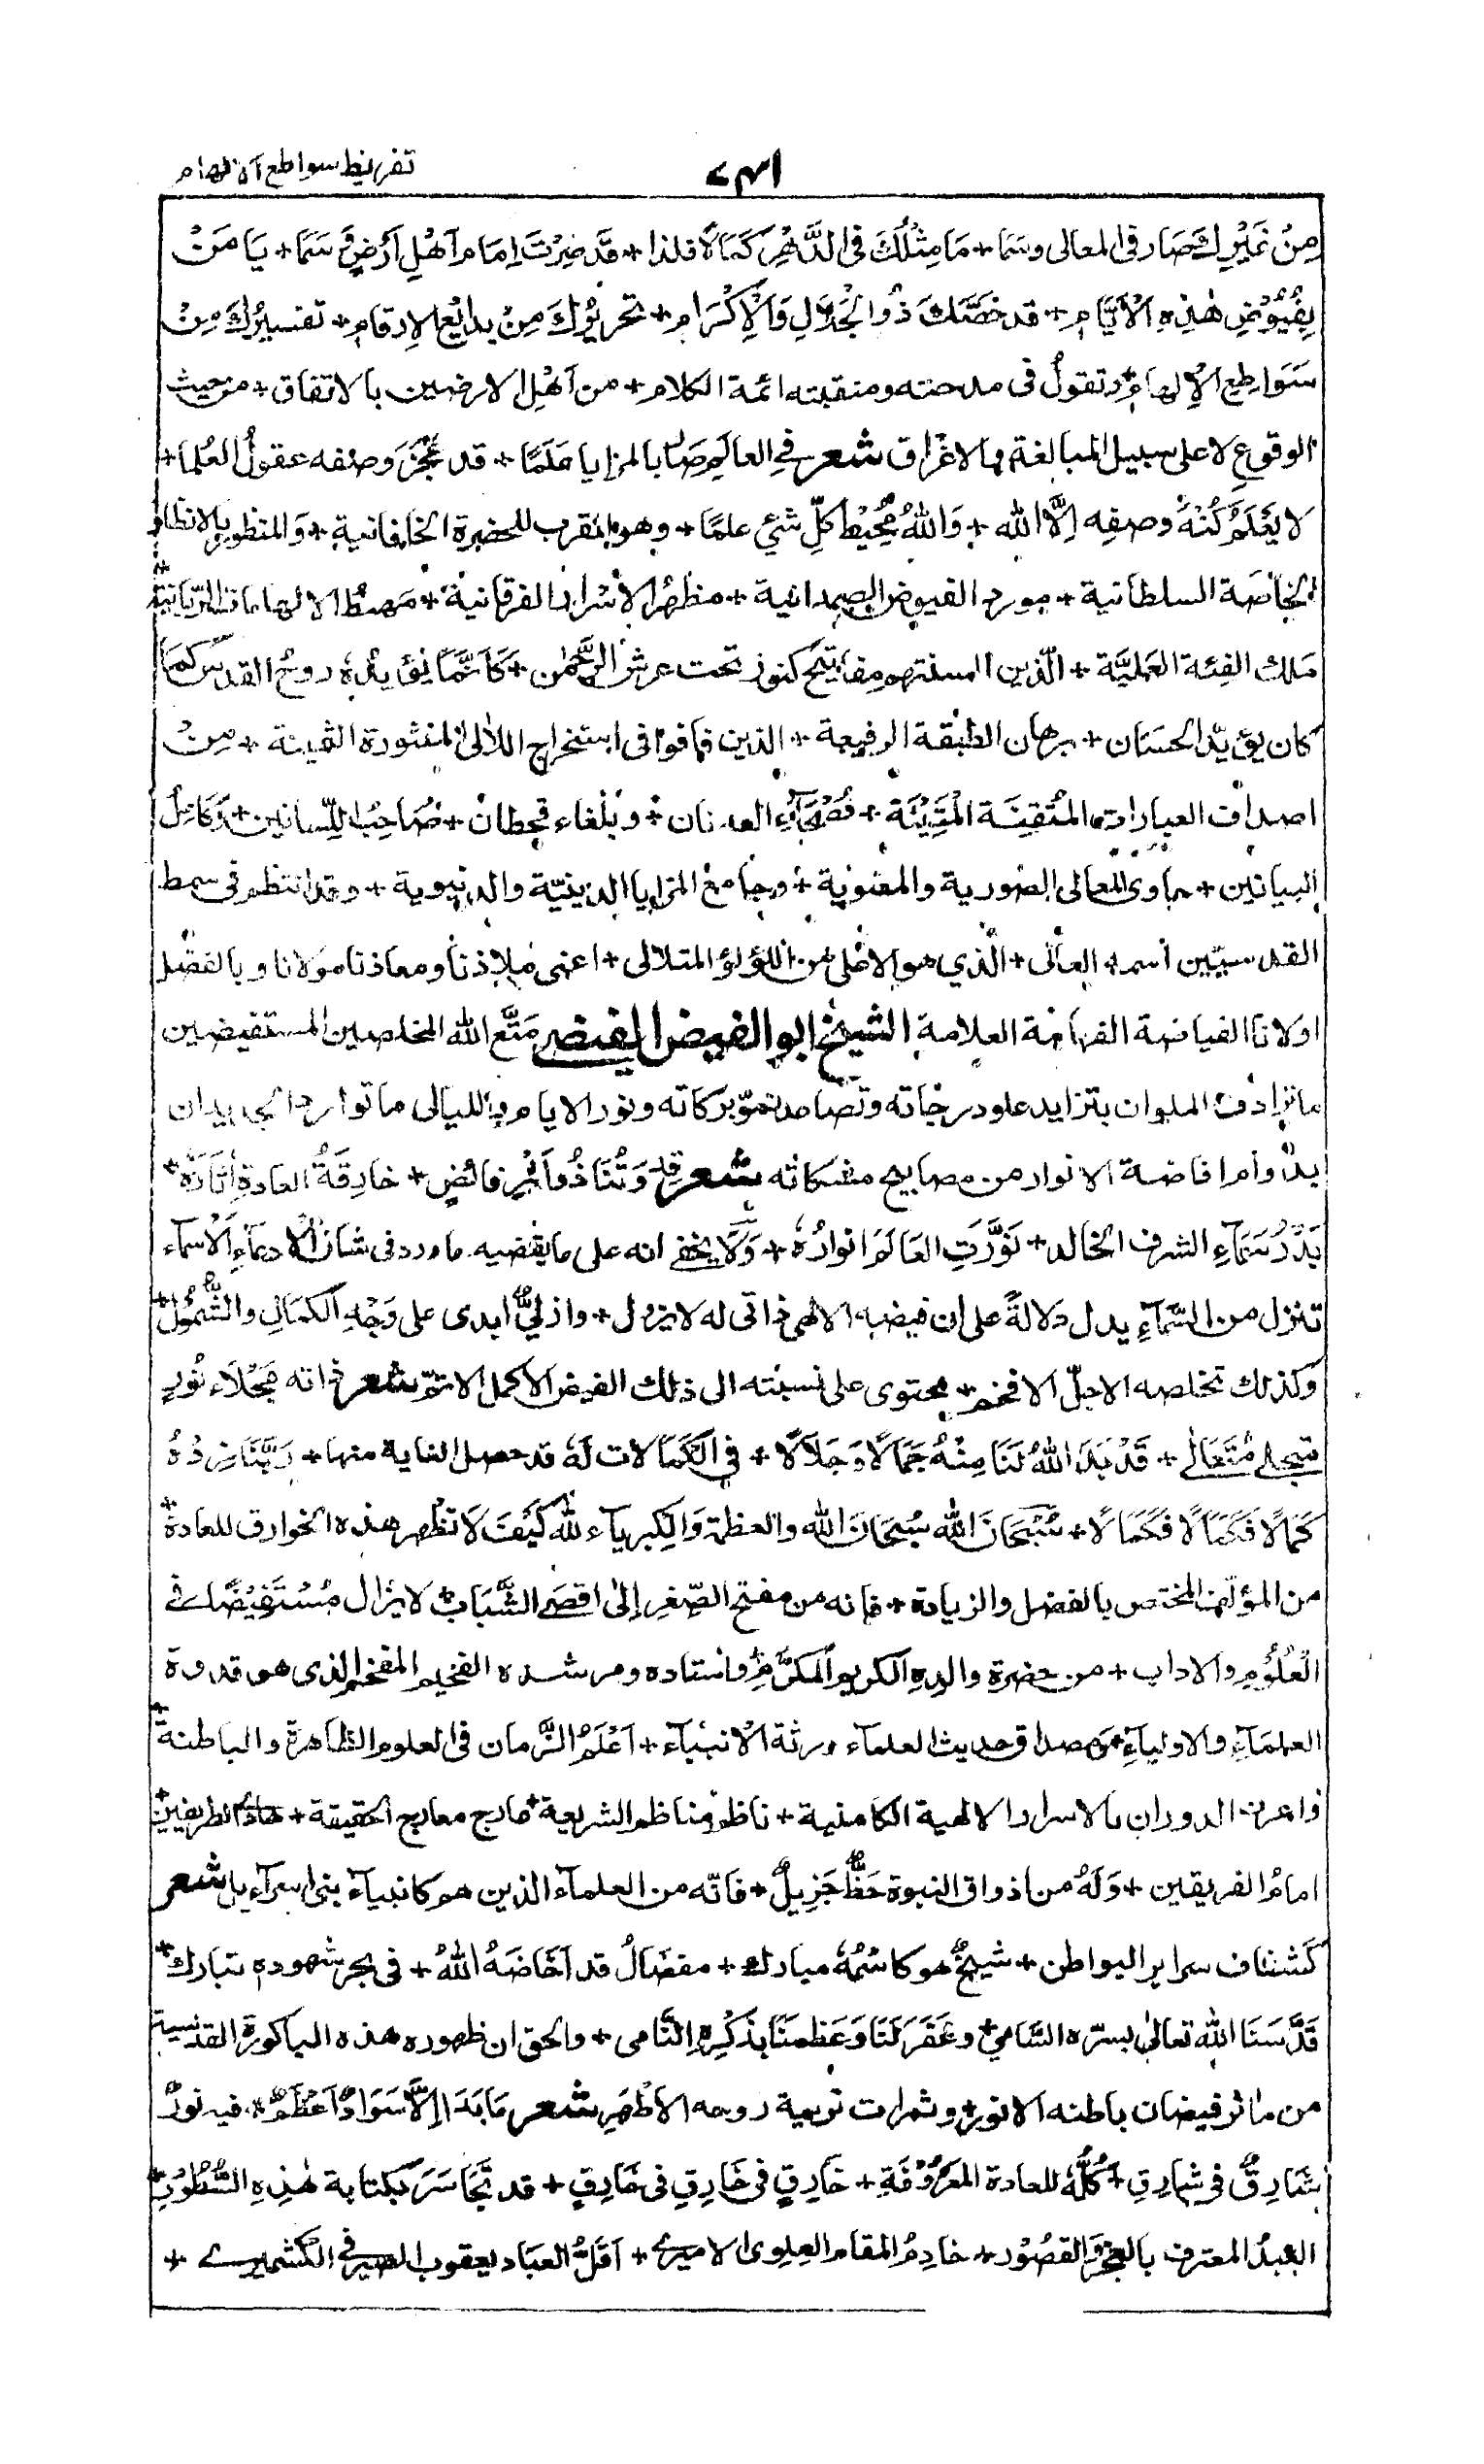 ٧٤١
تفريظ سواطع الالهام
مِنْ غَيْرِكَ صَارفى المعالى وسَمَا + مَا مِثْلُكَ فى الدَّهْرِ كَمَالًا فلذا + قَد صِرْتَ اِمَام اَهْلِ اَرْضٍ وَّسَمَا + يَا مَنْ
بِفُيُوْضِ هٰذِهِ الْاَيَّامِ + قد خَصَّكَ ذُو الْجَلَالِ وَالْاِكْرَام + تحريرُكَ مِنْ بدائع الارقام + تفسيرُكَ مِنْ
سَوَاطِعِ الْاِلهام + وتقولُ فى مدحته ومنقبته ائمة الكلام + من اَهْلِ الارضين بالاتفاق + من حيث
الوقوعِ لا على سبيل المبالغة والاغراق شعر فى العالَمِ صَار بالمزايا عَلَمًا + قد عَجَزَ وصفه عقولُ العُلما +
لا يَعْلَمُ كُنْهُ وصفِه اِلَّا الله + وَاللهُ مُحِيْط كلِّ شئ علمًا + وهو المقرب للحضرة الخاقانية + وَالمنظور بالانظار
الخاصَة السلطانية + مورد الفيوض الصمدانية + مظهرُ الاَسْرار الفرقانية + مَهبطُ الالهامات الربّانية +
مَلك الفِئة العَليَّة + الّذين السنتهم مفاتيح كنوز تحت عرش الرَّحمٰن + كَاَنَّمَا يؤيدُهٗ روحُ القدس كما
كان يؤيّد الحسَان + برهان الطبقة الرفيعة + الذين فاقوا فى استخراج اللآلى المنثورة الثمينة + مِنْ
اصداف العبارات المُتْقِنَة المَتِيْنَة + فُصْحَاءِ العدنان + وبُلغاء قحطان + صَاحِبُ اللِّسانين + وَكَامِلُ
البيانين + حاوى المعالى الصّورية والمعنوية + وجَامعُ المزايا الدينيّة والدنيوية + وقد انتظم فى سمط
القدسيّين اسمه العالى + الّذي هو الاغلى من اللؤلؤ المتلالى + اعنى مَلاذنا ومعاذنا مولانا وبالفضل
اولانا الفياضة الفهامة العلامة الشيخ ابو الفيض الفيضى مَتَّع الله المخلصين المستفيضين
ما ترادف الملوان بتزايد علو درجاته وتصاعد نموّ بركاته ونور الايام والليالى ما توارد الجديدان
بدوام افاضة الانوار من مصابيح مشكاته شعر
بَدْرُ سَمَاءِ الشرف الخالد + نَوَّرَتِ العَالَمَ انوارُهٗ + وَلَا يخفى انه على ما يقتضيه ما ورد فى شان الاَسمآء
تنزل من السَّمآءِ يدل دلالةً على ان فيضه الالهى ذاتى له لا يزول + وازليٌّ ابدى على وَجْهِ الكمَالِ والشُّمُوْل +
وكذلك تخلصه الاجلّ الافخم + محتوى على نسبته الى ذلك الفيض الاكمل الاتمّ شعر ذاته مَجْلاء نُورِ
تجلى مُتَعَالٰى + قَدْ بَدَا اللهُ لَنَا مِنْهُ جَمَالًا وَجَلَالًا + فى الكَمَالات لَهٗ قد حصل الغاية منها + رَبَّنَا زِدْهُ
كَمَالًا فَكَمَالًا فَكَمَالًا + سُبْحَانَ الله سُبحَانَ الله والعظمة وَالكِبرياء لله كَيْفَ لَا تظهر هذه الخوارق للعادة +
من المؤلّف المختص بالفضل والزيادة + فانه من مفتح الصّغرِ اِلىٰ اقصَى الشَّبَاب + لا يزال مُسْتَفِيْضًا فى
الْعُلُوْمِ والاداب + من حضرة والدِهِ الكريم المكرَّمِ + واستاده ومرشده الفخيم المفخم الذى هو قدوة
العلمَآءِ والاولياءِ + مصداق حديث العلمآء ورثة الانبيآء + اَعْلَمُ الزَّمان فى العلوم الظاهرة والباطنة +
واعرف الدوران بالاسرار الالهية الكامنة + ناظم مناظم الشريعة + عارج معارج الحقيقة +
امامُ الفريقين + وَلَهٗ من اذواق النبوة حَظٌّ جَزِيلٌ + فَاِنّه من العلمآء الذين هم كانبيآء بنى اسرآءيل شعر
كَشّاف سراير البواطن + شيخٌ هو كاسْمُهٗ مبارك + مفضالٌ قد اَفَاضَهُ اللهُ + فى بحر شهوده تبارك +
قَدَّسَنَا الله تعالىٰ بسرّه السَّامي + وغَفَر لَنَا وَعَظمَنَا بذَكْرِهِ النَّامى + والحق ان ظهور هذه الباكورة القدسية
من مآثر فيضان باطنه الانور + وثمرات تربية روحه الاَطْهَرِ شعر مَا بَدَا اِلَّا سَوَادٌ اَعْظَمٌ + فيه نورٌ
شَارِقٌ فى شارِقِ + كُلُّهٗ للعادة المَعْرُوْفَةِ + خَارِقٌ فى خَارِقٍ فى خَارِقٍ + قد تَجَاسَرَ بكتابة هٰذِهِ السُّطُوْر +
العبدُ المعترف بالعجزِ وَالقصُوْر + خادِمُ المقام العِلوى الاميرى + اَقَلُّ العبَاد يعقوب الصيرفى الكشميرى +